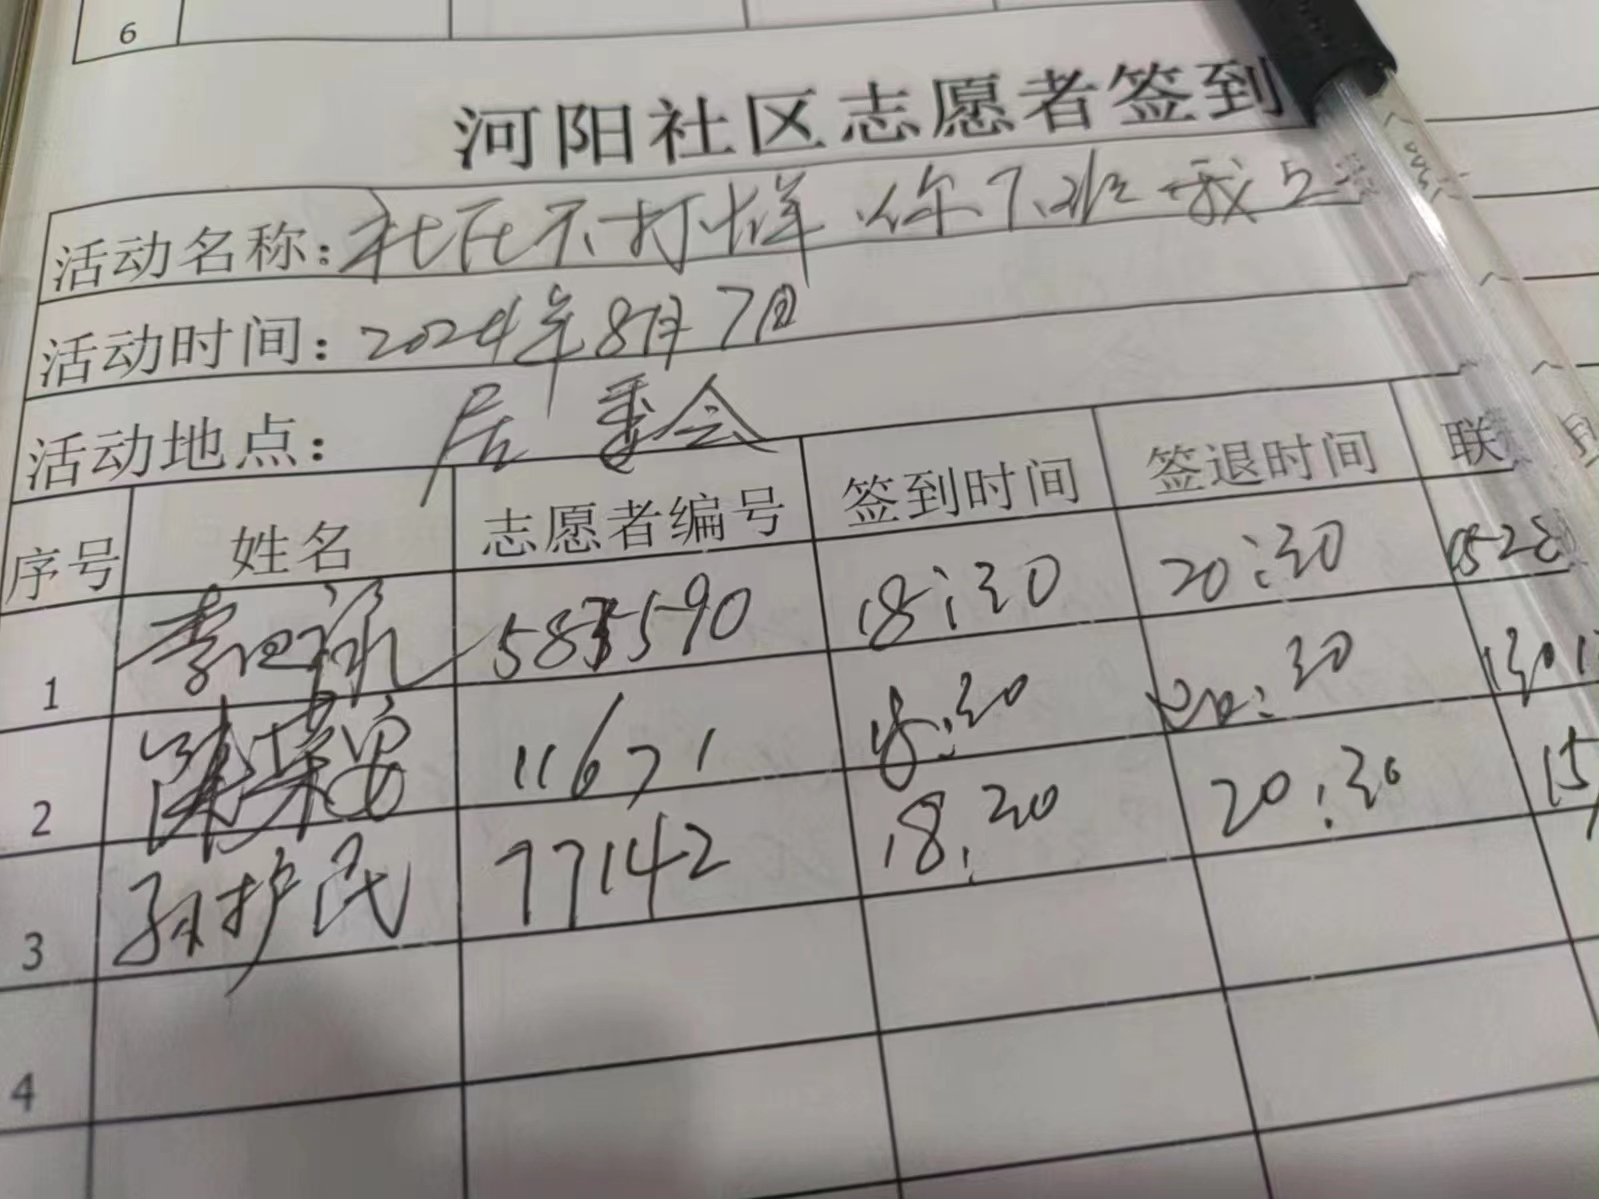 6
河阳社区志愿者签到
活动名称：社区不打烊 你下班我上
活动时间：2024年8月7日
活动地点：居委会
序号 姓名 志愿者编号 签到时间 签退时间 联
1 5835590 18:30 20:30 1528
2 陈荣安 11671 18:30 20:30 1301
3 孙护民 77142 18:30 20:30 15
4